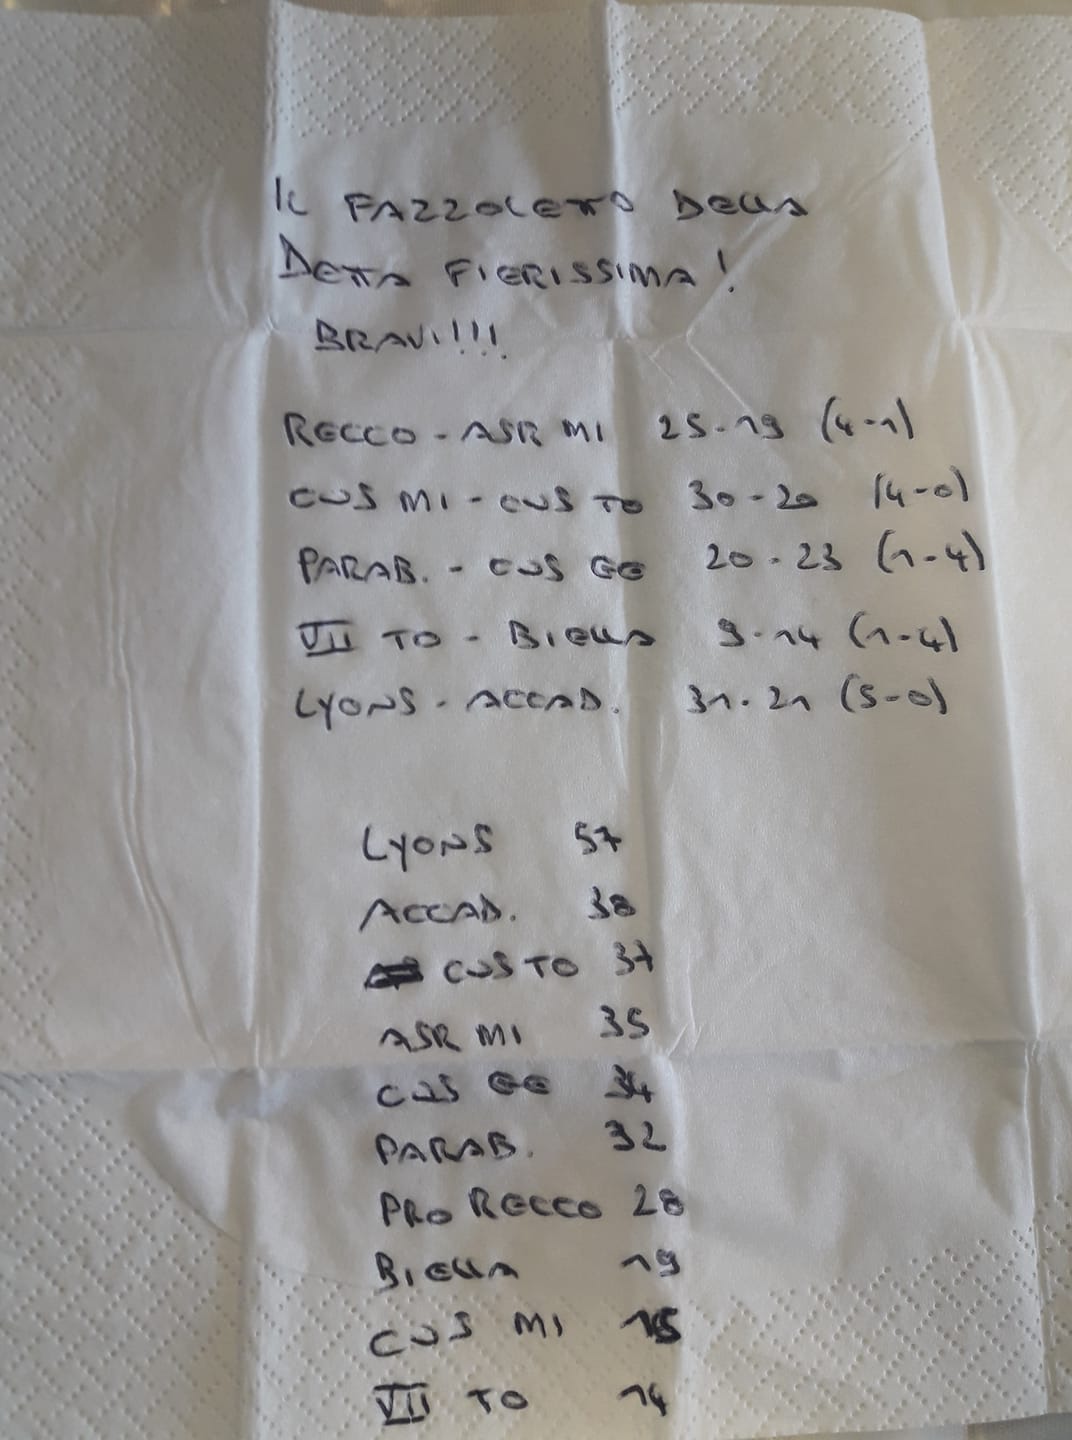 IL FAZZOLETTO DELLA
DETTA FIERISSIMA!
BRAVI!!!
RECCO - ASR MI 25-19 (4-1)
CUS MI - CUS TO 30-20 (4-0)
PARAB. - CUS GE 20-23 (1-4)
VII TO - BIELLA 9-14 (1-4)
LYONS - ACCAD. 31-21 (5-0)
LYONS 57
ACCAD. 38
CUS TO 37
ASR MI 35
CUS GE 34
PARAB. 32
PRO RECCO 28
BIELLA 19
CUS MI
VII TO 14